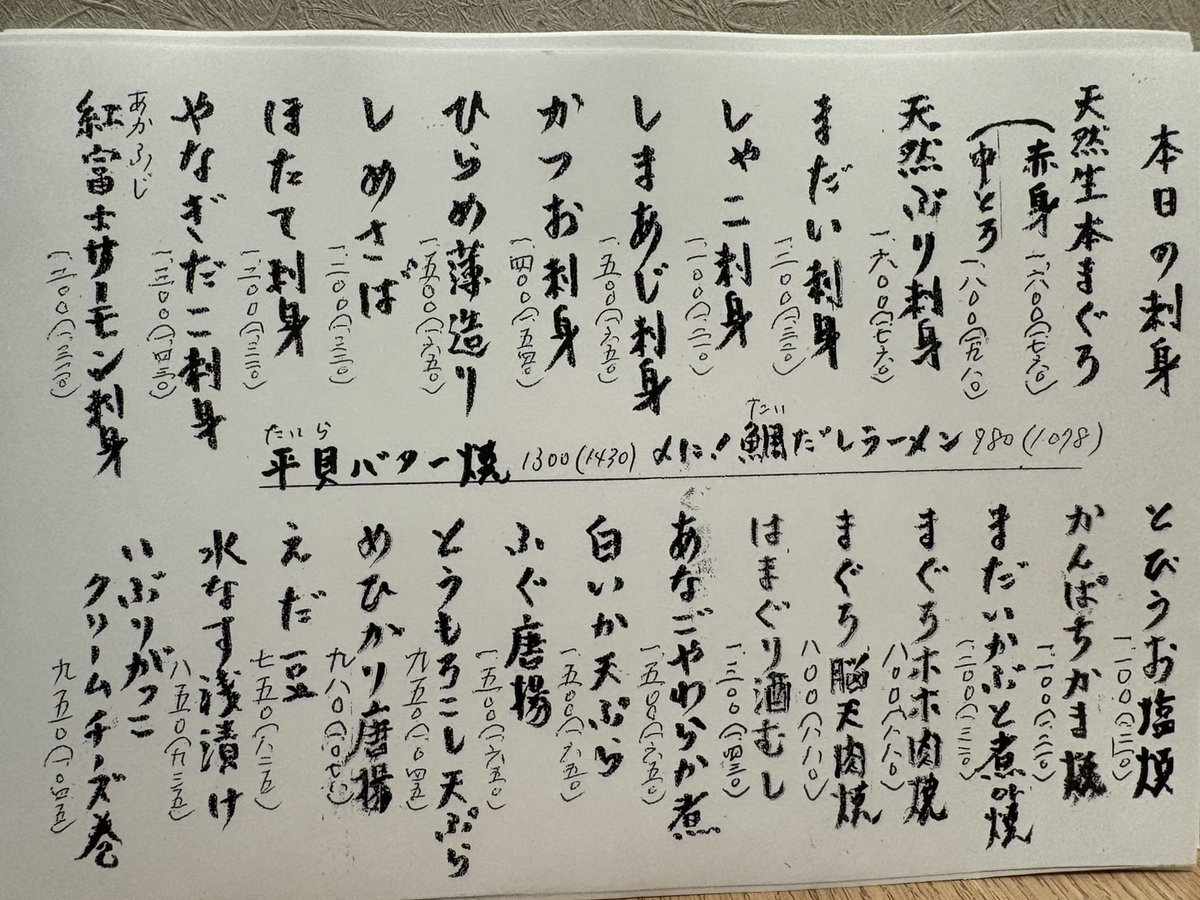 本日の刺身
天然生本まぐろ
赤身 一、六〇〇(一、七六〇)
中とろ 一、八〇〇(一、九八〇)
天然ぶり刺身 一、六〇〇(一、七六〇)
まだい刺身 一、二〇〇(一、三二〇)
しゃこ刺身 一、一〇〇(一、二一〇)
しまあじ刺身 一、五〇〇(一、六五〇)
かつお刺身 一、四〇〇(一、五四〇)
ひらめ薄造り 一、五〇〇(一、六五〇)
しめさば 一、二〇〇(一、三二〇)
ほたて刺身 一、二〇〇(一、三二〇)
やなぎだこ刺身 一、三〇〇(一、四三〇)
あかふじ
紅富士サーモン刺身 一、二〇〇(一、三二〇)
たいら たい
平貝バター焼 1300(1430) 〆に！鯛だしラーメン 980(1078)
とびうお塩焼 一、一〇〇(一、二一〇)
かんぱちかま焼 一、一〇〇(一、二一〇)
まだいかぶと煮or焼 一、二〇〇(一、三二〇)
まぐろホホ肉焼 八〇〇(八八〇)
まぐろ脳天肉焼 八〇〇(八八〇)
はまぐり酒むし 一、三〇〇(一、四三〇)
あなごやわらか煮 一、五〇〇(一、六五〇)
白いか天ぷら 一、五〇〇(一、六五〇)
ふぐ唐揚 一、五〇〇(一、六五〇)
とうもろこし天ぷら 九五〇(一、〇四五)
めひかり唐揚 九八〇(一、〇七八)
えだ豆 七五〇(八二五)
水なす浅漬け 八五〇(九三五)
いぶりがっこ
クリームチーズ巻 九五〇(一、〇四五)